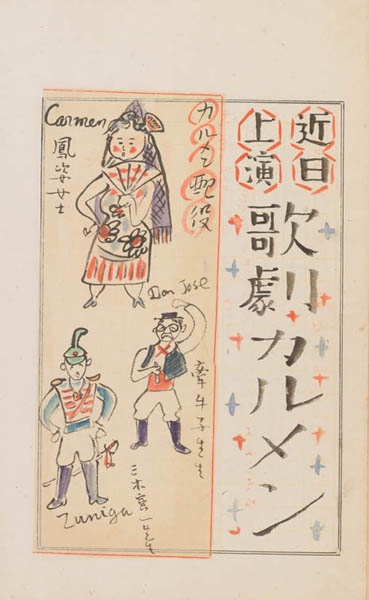 近日
上演
歌劇カルメン
カルメン配役
Carmen
鳳姿女士
Don José
牽牛子先生
Zuniga